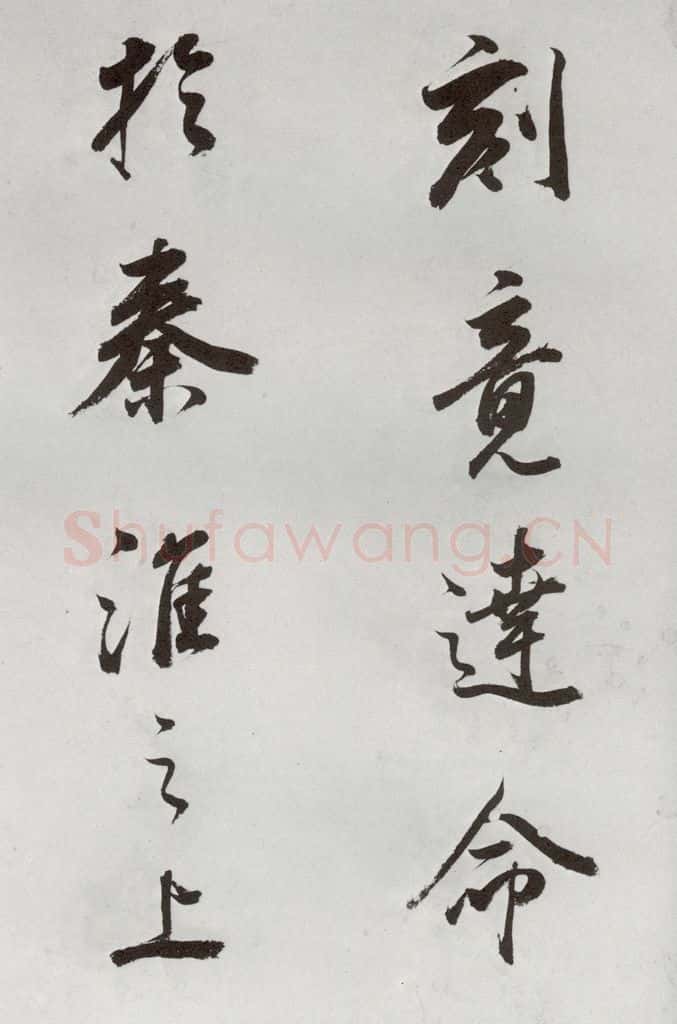 刻竟達命
於秦淮之上
Shufawang.CN